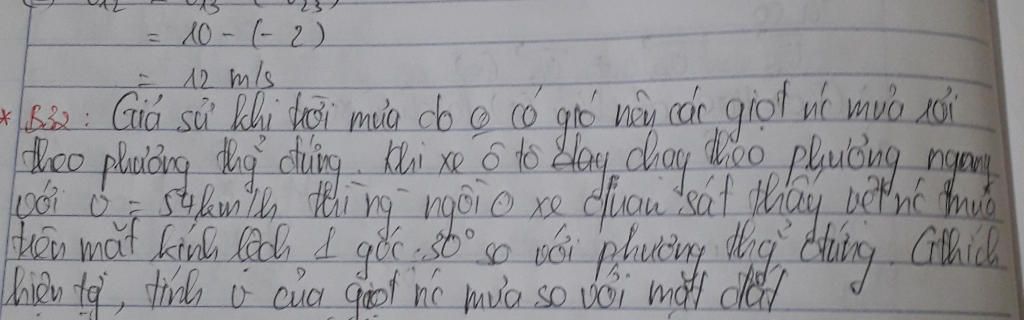 = 10 - (-2)
= 12 m/s
* B32: Giả sử khi trời mưa do o có gió nên các giọt nc mưa rơi
theo phương thg² đứng. Khi xe ô tô đag chạy theo phương ngang
với v = 54km/h thì ng~ ngồi o xe quan sát thấy vệt nc mưa
trên mặt kính lệch 1 góc 30° so với phương thg² đứng. Gthích
hiện tg², tính v của giọt nc mưa so với mặt đất